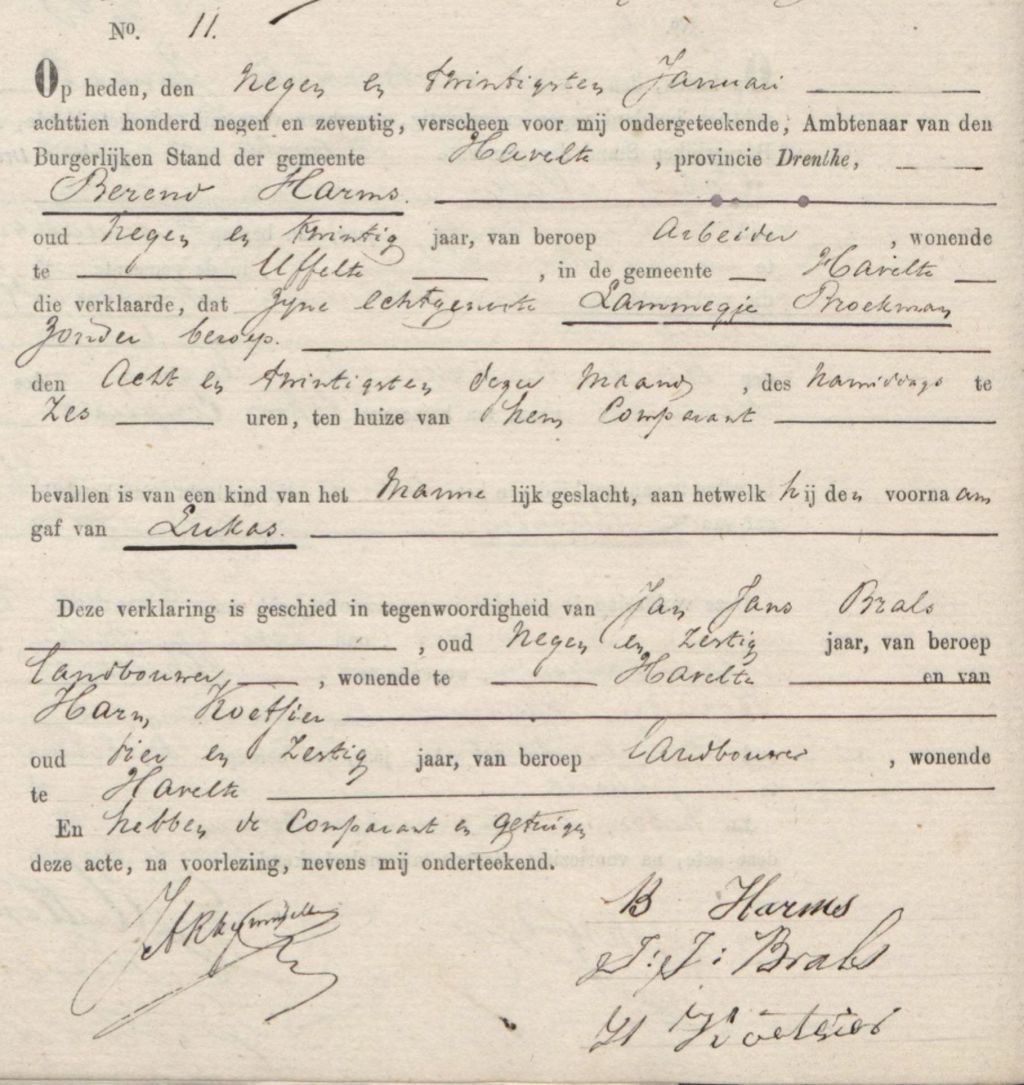 No. 11.
Op heden, den negen en twintigsten Januari
achttien honderd negen en zeventig, verscheen voor mij ondergeteekende, Ambtenaar van den
Burgerlijken Stand der gemeente Havelte, provincie Drenthe,
Berend Harms.
oud negen en twintig jaar, van beroep Arbeider, wonende
te Uffelte, in de gemeente Havelte
die verklaarde, dat zijne echtgenoote Lammegje Broekman
zonder beroep.
den Acht en twintigsten dezer maand, des namiddags te
zes uren, ten huize van hem Comparant
bevallen is van een kind van het Mannelijk geslacht, aan hetwelk hij den voornaam
gaf van Lukas.
Deze verklaring is geschied in tegenwoordigheid van Jan Jans Brals
, oud negen en zestig jaar, van beroep
landbouwer, wonende te Havelte en van
Harm Koetsier
oud vier en zestig jaar, van beroep landbouwer, wonende
te Havelte
En hebben de Comparant en getuigen
deze acte, na voorlezing, nevens mij onderteekend.
B Harms
J: J: Brals
H Koetsier